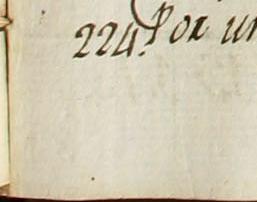 224. Por un